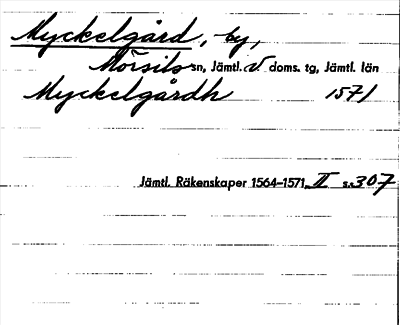 Myckelgård, by,
Mörsils sn, Jämtl. V doms. tg, Jämtl. län
Myckelgårdh 1571
Jämtl. Räkenskaper 1564–1571, II s. 307